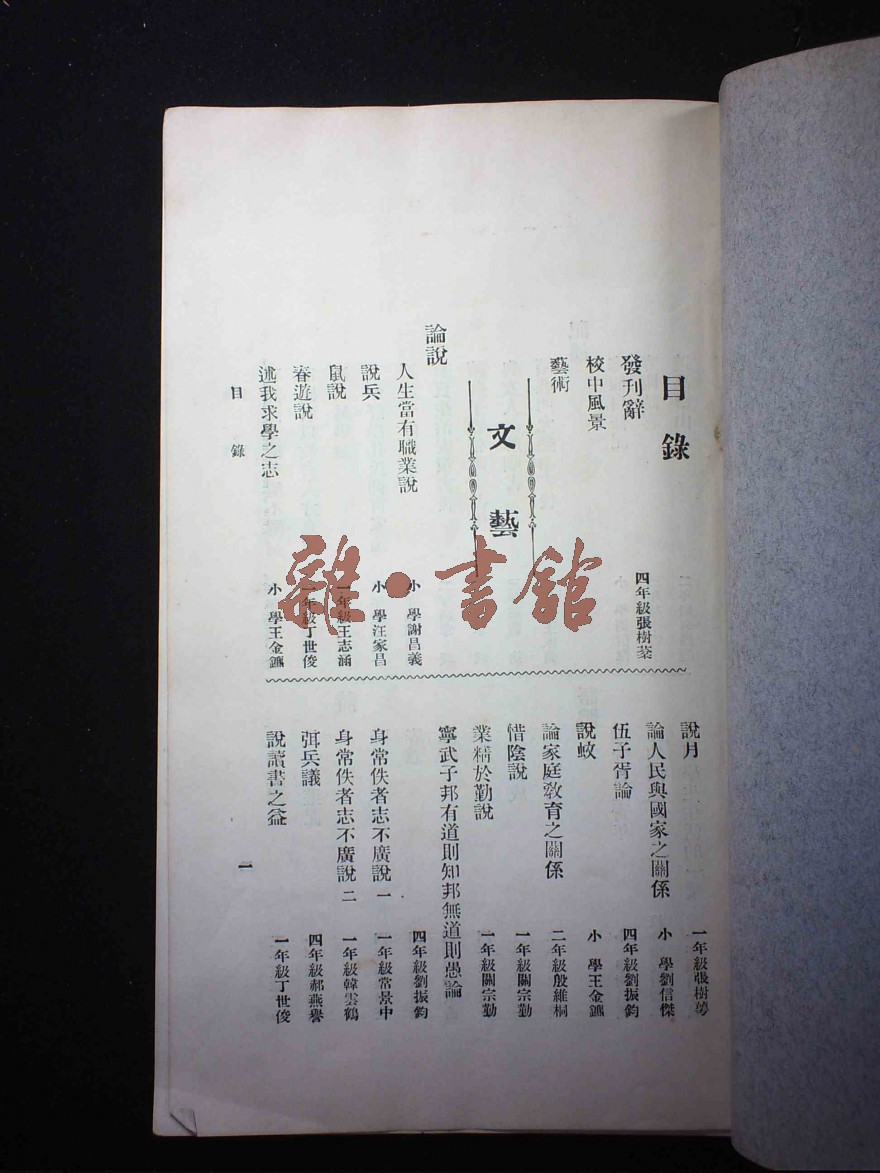 目錄
發刊辭 四年級張樹棻
校中風景
藝術
文藝
論說
人生當有職業說 小學謝昌義
說兵 小學汪家昌
鼠說 一年級王志涵
春遊說 一年級丁世俊
述我求學之志 小學王金鑣
說月 一年級張樹
論人民與國家之關係 小學劉信傑
伍子胥論 四年級劉振鈞
說蚊 小學王金鑣
論家庭敎育之關係 二年級殷維桐
惜陰說 一年級關宗勤
業精於勤說 一年級關宗勤
寧武子邦有道則知邦無道則愚論 四年級劉振鈞
身常佚者志不廣說 一 一年級常景中
身常佚者志不廣說 二 一年級韓雲鶴
弭兵議 四年級郝燕譽
說讀書之益 一年級丁世俊
目錄
一
雜·書館